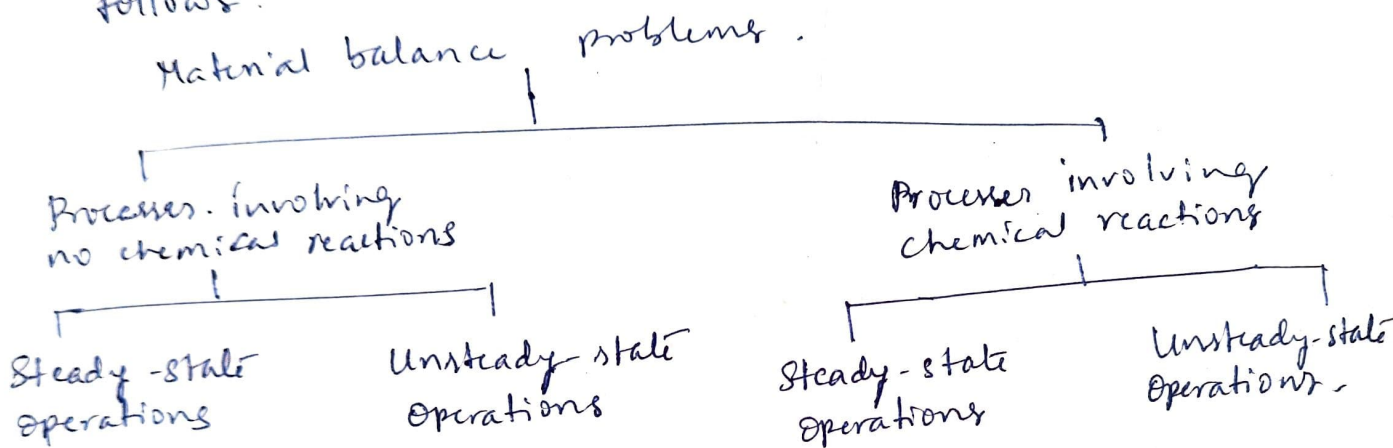 follows.
Material balance problems.
Processes. involving
no chemical reactions
Processes involving
chemical reactions
Steady-state
operations
Unsteady-state
operations
Steady-state
operations
Unsteady-state
operations.